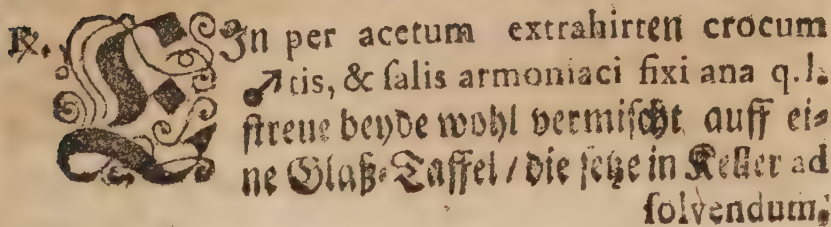 ℞. EIn per acetum extrahirten crocum
♂tis, & ſalis armoniaci fixi ana q.l.
ſtreue beyde wohl vermiſcht auff ei⸗
ne Glaß⸗Taffel / die ſetze in Keller ad
ſolvendum.